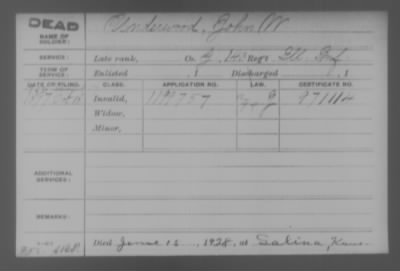 DEAD
Underwood, John W
NAME OF SOLDIER:
SERVICE: Late rank, Co. G, 143 Reg't Ill Inf
TERM OF SERVICE: Enlisted , 1 Discharged , 1
DATE OF FILING. CLASS. APPLICATION NO. LAW. CERTIFICATE NO.
Invalid, G 971114
Widow,
Minor,
ADDITIONAL SERVICES:
REMARKS:
Died June 15, 1928, at Salina, Kans.